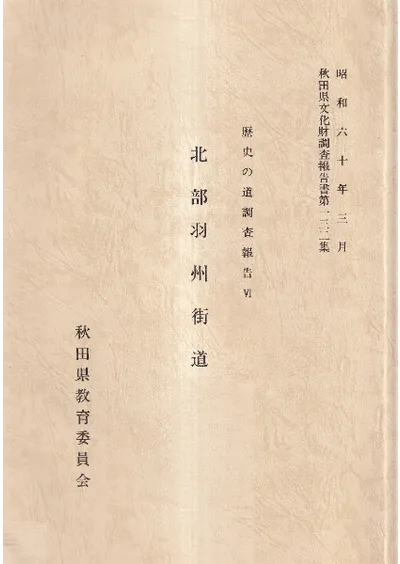 昭和六十年三月
秋田県文化財調査報告書
歴史の道調査報告Ⅵ
北部羽州街道
秋田県教育委員会